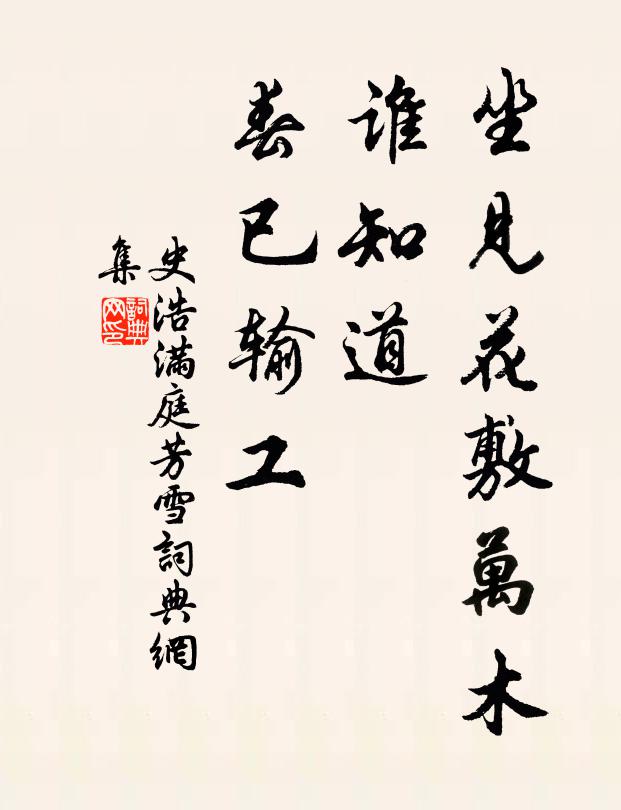 坐見花敷萬木
誰知道
春已輸工
史浩滿庭芳雪詞典網
集
詞典
网印